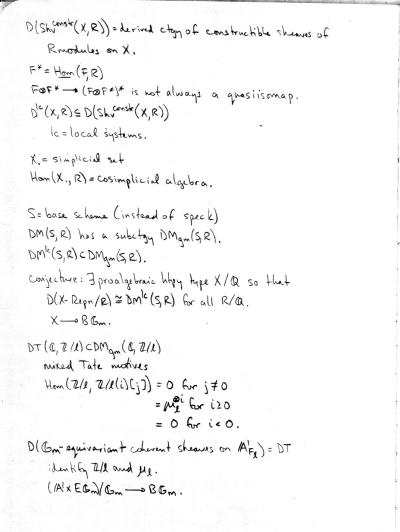 D(Shv^constr(X,R)) = derived ctgy of constructible sheaves of
R modules on X.
F* = Hom(F,R)
F⊗F* → (F⊗F*)* is not always a quasiisomap.
D^lc(X,R) ⊆ D(Shv^constr(X,R))
lc = local systems.
X. = simplicial set
Hom(X., R) = cosimplicial algebra.
S = base scheme (instead of spec k)
DM(S,R) has a subctgy DMgm(S,R).
DM^lc(S,R) ⊂ DMgm(S,R).
conjecture: ∃ proalgebraic htpy type X/Q so that
D(X-Repn/R) ≅ DM^lc(S,R) for all R/Q.
X → BGm.
DT(C, Z/l) ⊂ DMgm(C, Z/l)
mixed Tate motives
Hom(Z/l, Z/l(i)[j]) = 0 for j≠0
= μ_l^⊗i for i≥0
= 0 for i<0.
D(Gm-equivariant coherent sheaves on A¹_F_l) = DT
identify Z/l and μ_l.
(A¹×EGm)/Gm → BGm.